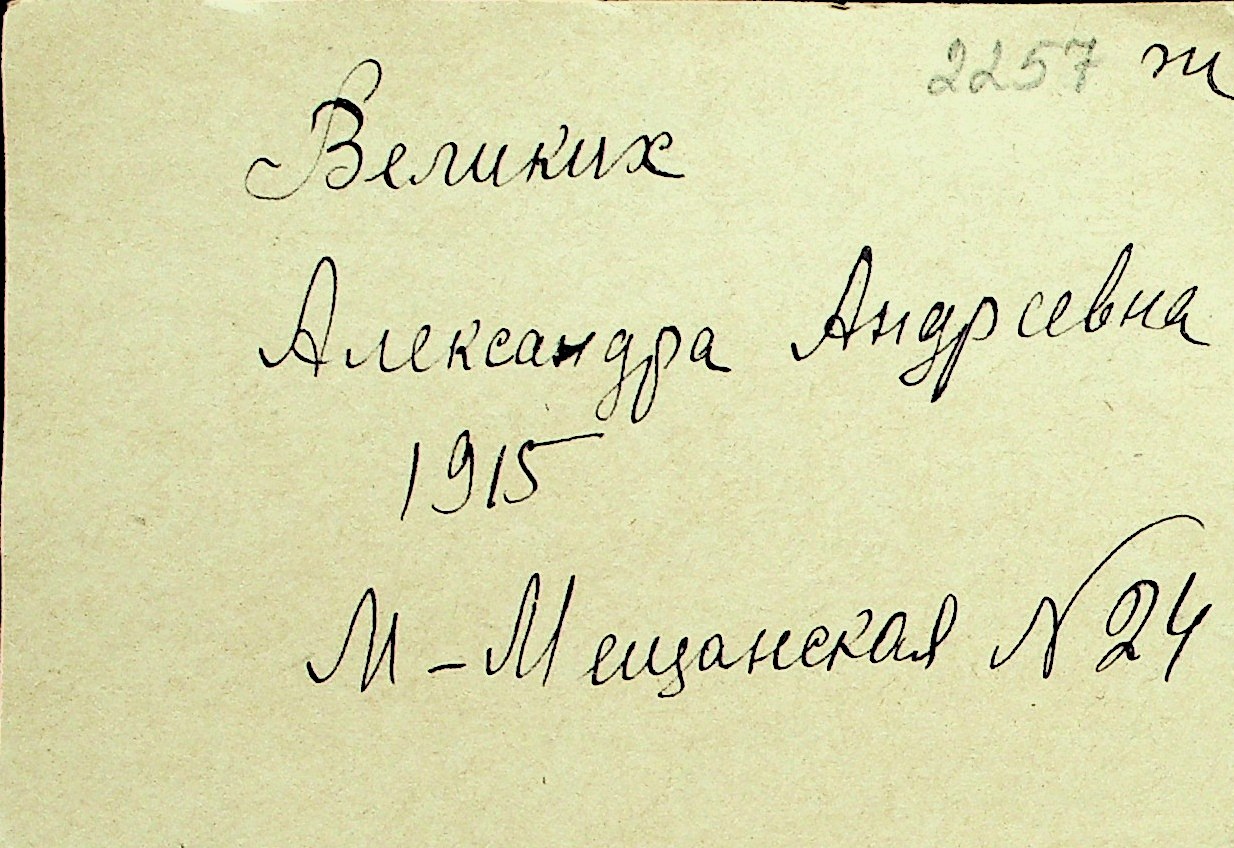 2257
Великих
Александра Андреевна
1915
М-Мещанская № 24